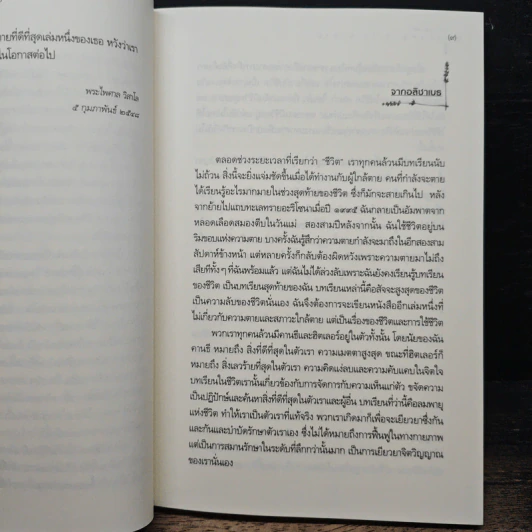 ายที่ดีที่สุดเล่มหนึ่งของเธอ หวังว่าเรา
ในโอกาสต่อไป
พระไพศาล วิสาโล
๕ กุมภาพันธ์ ๒๕๔๘
จากอลิซาเบธ
ตลอดช่วงระยะเวลาที่เรียกว่า “ชีวิต” เราทุกคนล้วนมีบทเรียนนับ
ไม่ถ้วน สิ่งนี้จะยิ่งแจ่มชัดขึ้นเมื่อได้ทำงานกับผู้ใกล้ตาย คนที่กำลังจะตาย
ได้เรียนรู้อะไรมากมายในช่วงสุดท้ายของชีวิต ซึ่งก็มักจะสายเกินไป หลัง
จากย้ายไปแถบทะเลทรายอะริโซนาเมื่อปี ๑๙๙๕ ฉันกลายเป็นอัมพาตจาก
หลอดเลือดสมองตีบในวันแม่ สองสามปีหลังจากนั้น ฉันใช้ชีวิตอยู่บน
ริมขอบแห่งความตาย บางครั้งฉันรู้สึกว่าความตายกำลังจะมาถึงในอีกสองสาม
สัปดาห์ข้างหน้า แต่หลายครั้งก็กลับต้องผิดหวังเพราะความตายมาไม่ถึง
เสียทีทั้งๆ ที่ฉันพร้อมแล้ว แต่ฉันไม่ได้ล่วงลับเพราะฉันยังคงเรียนรู้บทเรียน
ของชีวิต เป็นบทเรียนสุดท้ายของฉัน บทเรียนเหล่านี้คือสัจจะสูงสุดของชีวิต
เป็นความลับของชีวิตนั่นเอง ฉันจึงต้องการจะเขียนหนังสืออีกเล่มหนึ่งที่
ไม่เกี่ยวกับความตายและสภาวะใกล้ตาย แต่เป็นเรื่องของชีวิตและการใช้ชีวิต
พวกเราทุกคนล้วนมีคานธีและฮิตเลอร์อยู่ในตัวทั้งนั้น โดยนัยของฉัน
คานธี หมายถึง สิ่งที่ดีที่สุดในตัวเรา ความเมตตาสูงสุด ขณะที่ฮิตเลอร์ก็
หมายถึง สิ่งเลวร้ายที่สุดในตัวเรา ความคิดแง่ลบและความคับแคบในจิตใจ
บทเรียนในชีวิตเรานั้นเกี่ยวข้องกับการจัดการกับความเห็นแก่ตัว ขจัดความ
เป็นปฏิปักษ์และค้นหาสิ่งที่ดีที่สุดในตัวเราและผู้อื่น บทเรียนที่ว่านี้คือลมพายุ
แห่งชีวิต ทำให้เราเป็นตัวเราที่แท้จริง พวกเราเกิดมาก็เพื่อจะเยียวยาซึ่งกัน
และกันและบำบัดรักษาตัวเราเอง ซึ่งไม่ได้หมายถึงการฟื้นฟูในทางกายภาพ
แต่เป็นการสมานรักษาในระดับที่ลึกกว่านั้นมาก เป็นการเยียวยาจิตวิญญาณ
ของเรานั่นเอง